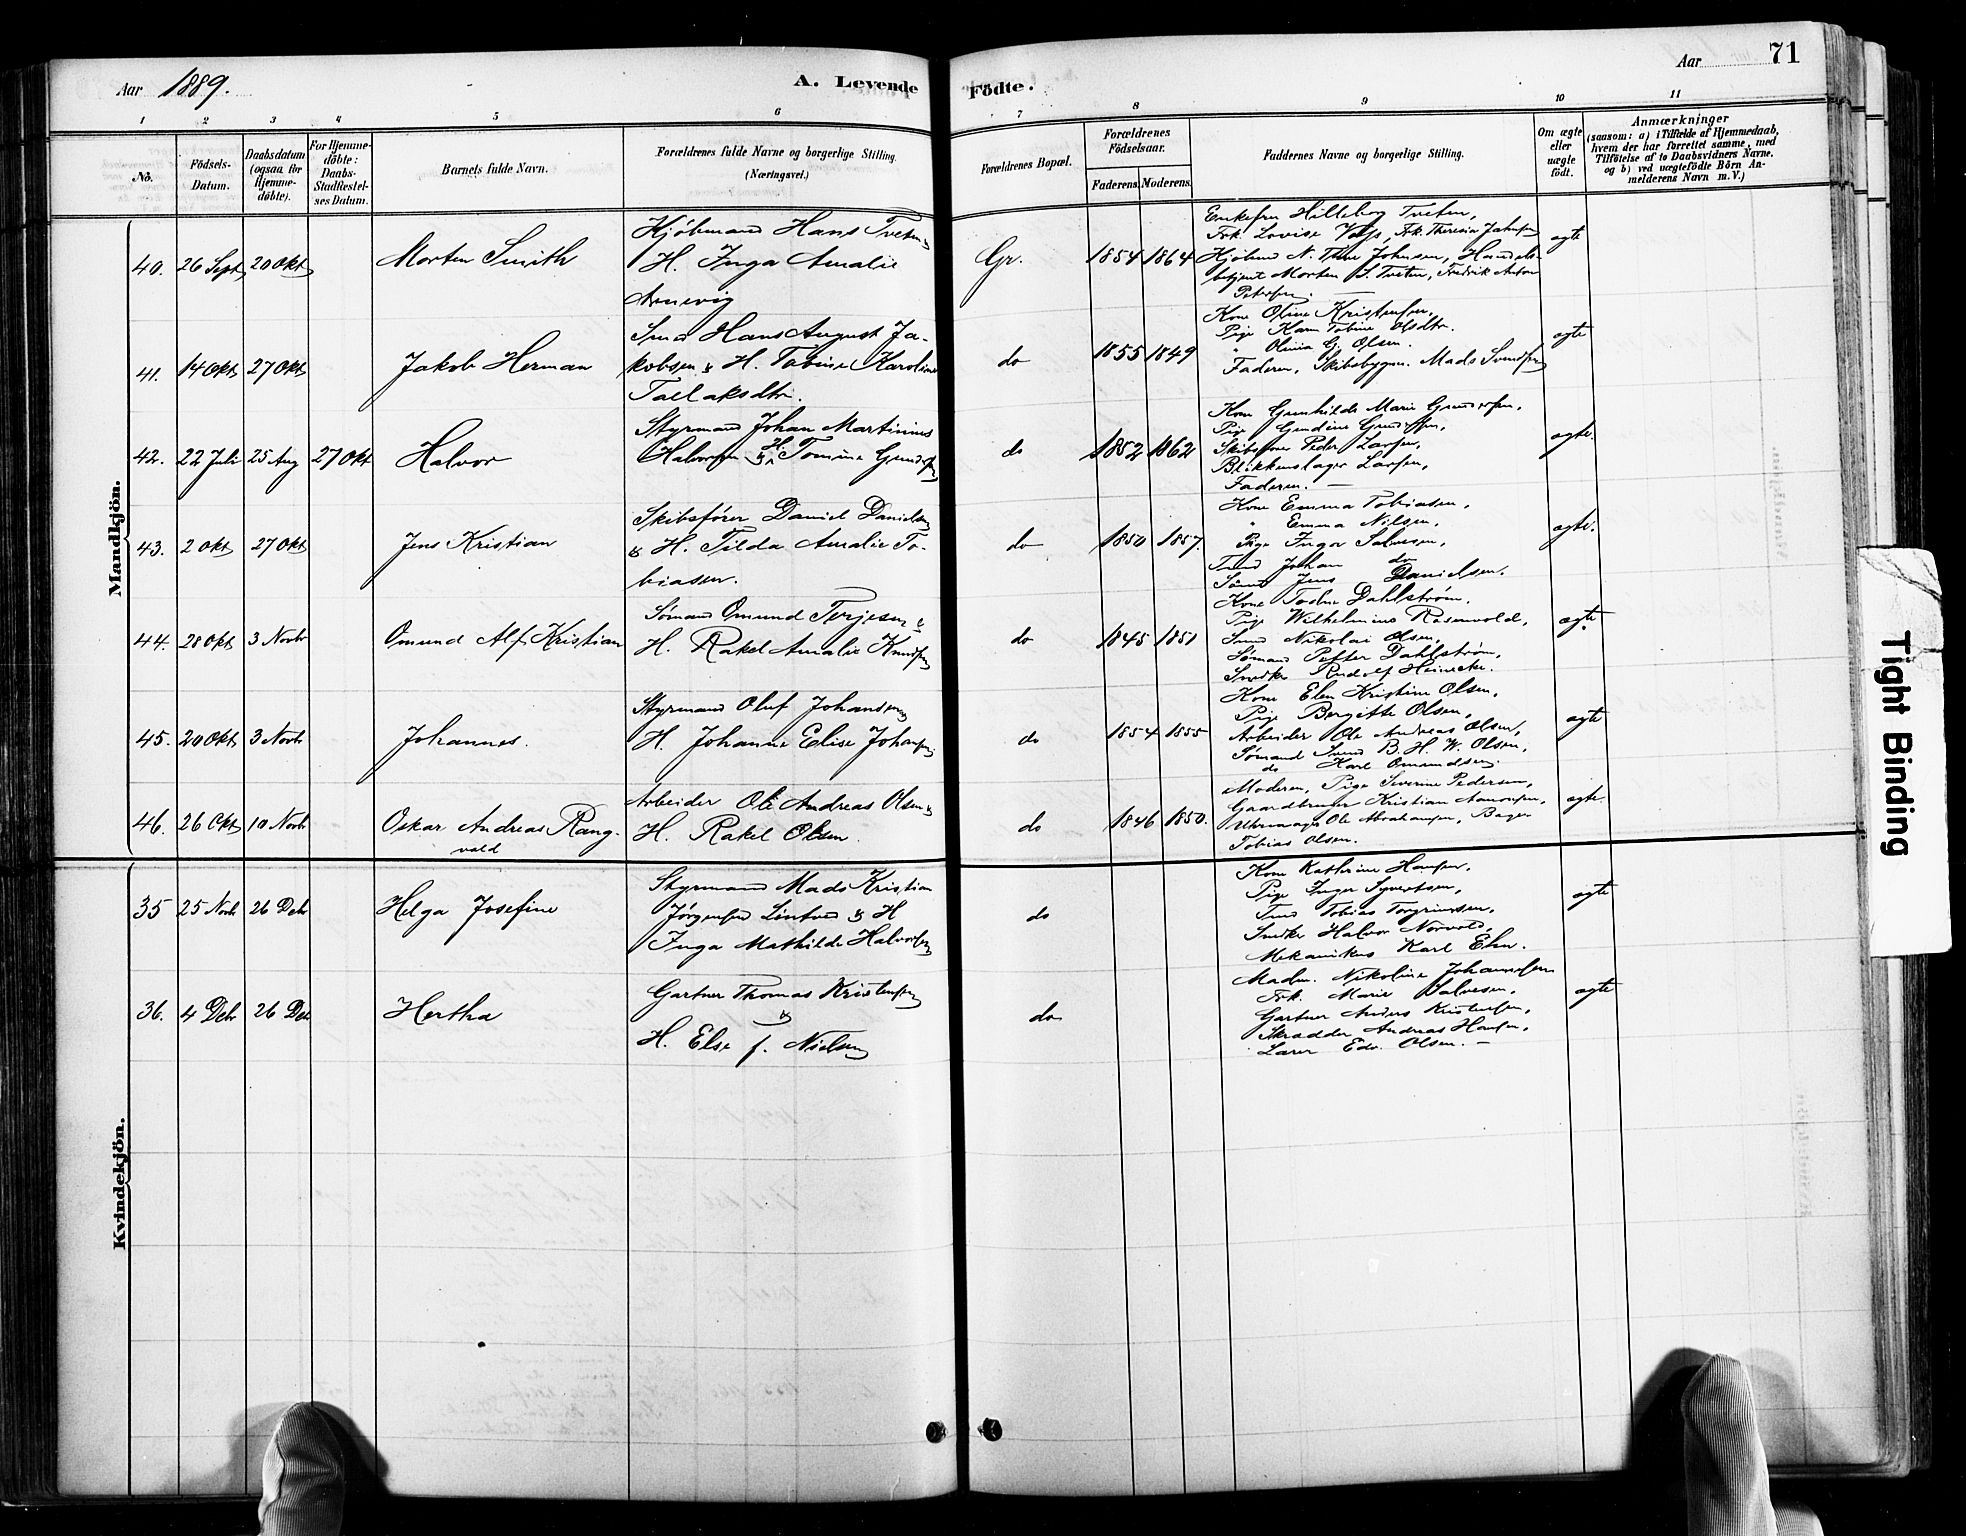 Aar 1889.
A. Levende
Födte.
Aar
71
1
2
3
4
5
6
7
8
9
10
11
No.
Födsels-
Datum.
Daabsdatum
(ogsaa for
Hjemme-
döbte).
For Hjemme-
döbte:
Daabs-
Stadfæstel-
ses Datum.
Barnets fulde Navn.
Forældrenes fulde Navne og borgerlige Stilling.
(Næringsvei.)
Forældrenes Bopæl.
Forældrenes
Födselsaar.
Faderens.
Moderens.
Faddernes Navne og borgerlige Stilling.
Om ægte
eller
uægte
födt.
Anmærkninger
(saasom: a) i Tilfælde af Hjemmedaab,
hvem der har forrettet samme, med
Tilföielse af to Daabsvidners Navne,
og b) ved uægtefödte Börn An-
melderens Navn m. V.)
Mandkjön.
40. 26 Sept 20 Okt
Morten Smith
Kjöbmand Hans Tveten &
H. Inga Amalie
Arnevig
Gr.
1854 1864
Enkefru Hilleborg Tveten,
Frk. Lovise , Frk. Theresia
Kjöbmd N. Johnsen, Handels-
betjent Morten S. Tveten, Fredrik Anton
Petersen.
ægte
41. 14 Okt 27 Okt
Jakob Herman
Smed Hans August Ja-
kobsen & H. Tobine Karoline
Tallaksdtr.
do
1855 1849
Kone Oline Kristensen,
Pige Karen Tobine Olsdtr.
" Olivia G. Olsen.
Faderen, Skibsbyggm. Mads Svendsen
ægte
42. 22 Juli 25 Aug 27 Okt
Halvor
Styrmand Johan Martinius
Halvorsen & H. Tomine Gundersen
do
1852 1862
Kone Gunhilde Marie Gundersen,
Pige Gundersen,
Skibsförer Peder Larsen,
Blikkenslager Larsen,
Faderen. —
ægte.
43. 2 Okt 27 Okt
Jens Kristian
Skibsförer Daniel Danielsen
& H. Tilda Amalie To-
biasen.
do
1850 1857.
Kone Emma Tobiasen,
" Emma Nilsen,
Pige Inga Salvesen,
Johan do
Jens Danielsen.
ægte.
44. 28 Okt 3 Novbr
Omund Alf Kristian
Sömand Omund Terjesen &
H. Rakel Amalie Knudsen
do
1845 1851
Kone Dahlström,
Pige Wilhelmine Rosenvold,
Nikolai Olsen,
Sömand Petter Dahlström,
Snedker Rudolf Heinecke.
ægte
45. 20 Okt 3 Novbr
Johannes.
Styrmand Oluf Johansen
H. Johanne Elise Johansen
do
1854 1855
Kone Elen Kristine Olsen,
Pige Bergitte Olsen,
Arbeider Ole Andreas Olsen,
Sömand Svend B. H. W. Olsen,
do Karl Omundsen.
ægte
46. 26 Okt 10 Novbr
Oskar Andreas Rang-
vald
Arbeider Ole Andreas Olsen &
H. Rakel Olsen.
do
1846 1850.
Moderen, Pige Severine Pedersen,
Gaardbruger Kristian Aanonsen,
Uhrmager Ole Abrahamsen, Bager
Tobias Olsen.
ægte.
Kvindekjön.
35 25 Novbr 26 Debr
Helga Josefine
Styrmand Mads Kristian
Jörgensen Lintved & H
Inga Mathilde Halvorsen
do
Kone Kathrine Hansen,
Pige Inger Syvertsen,
Tobias Torgrimsen,
Snedker Halvor Norvold,
Mekanikus Karl
ægte
36. 4 Debr 26 Debr
Hertha
Gartner Thomas Kristensen
&
H. Else f. Nielsen
do
Madm. Nikoline Johannesen
Frk. Marie Salvesen,
Gartner Anders Kristensen,
Skrædder Andreas Hansen,
Lærer Edv. Olsen. —
ægte
Tight Binding